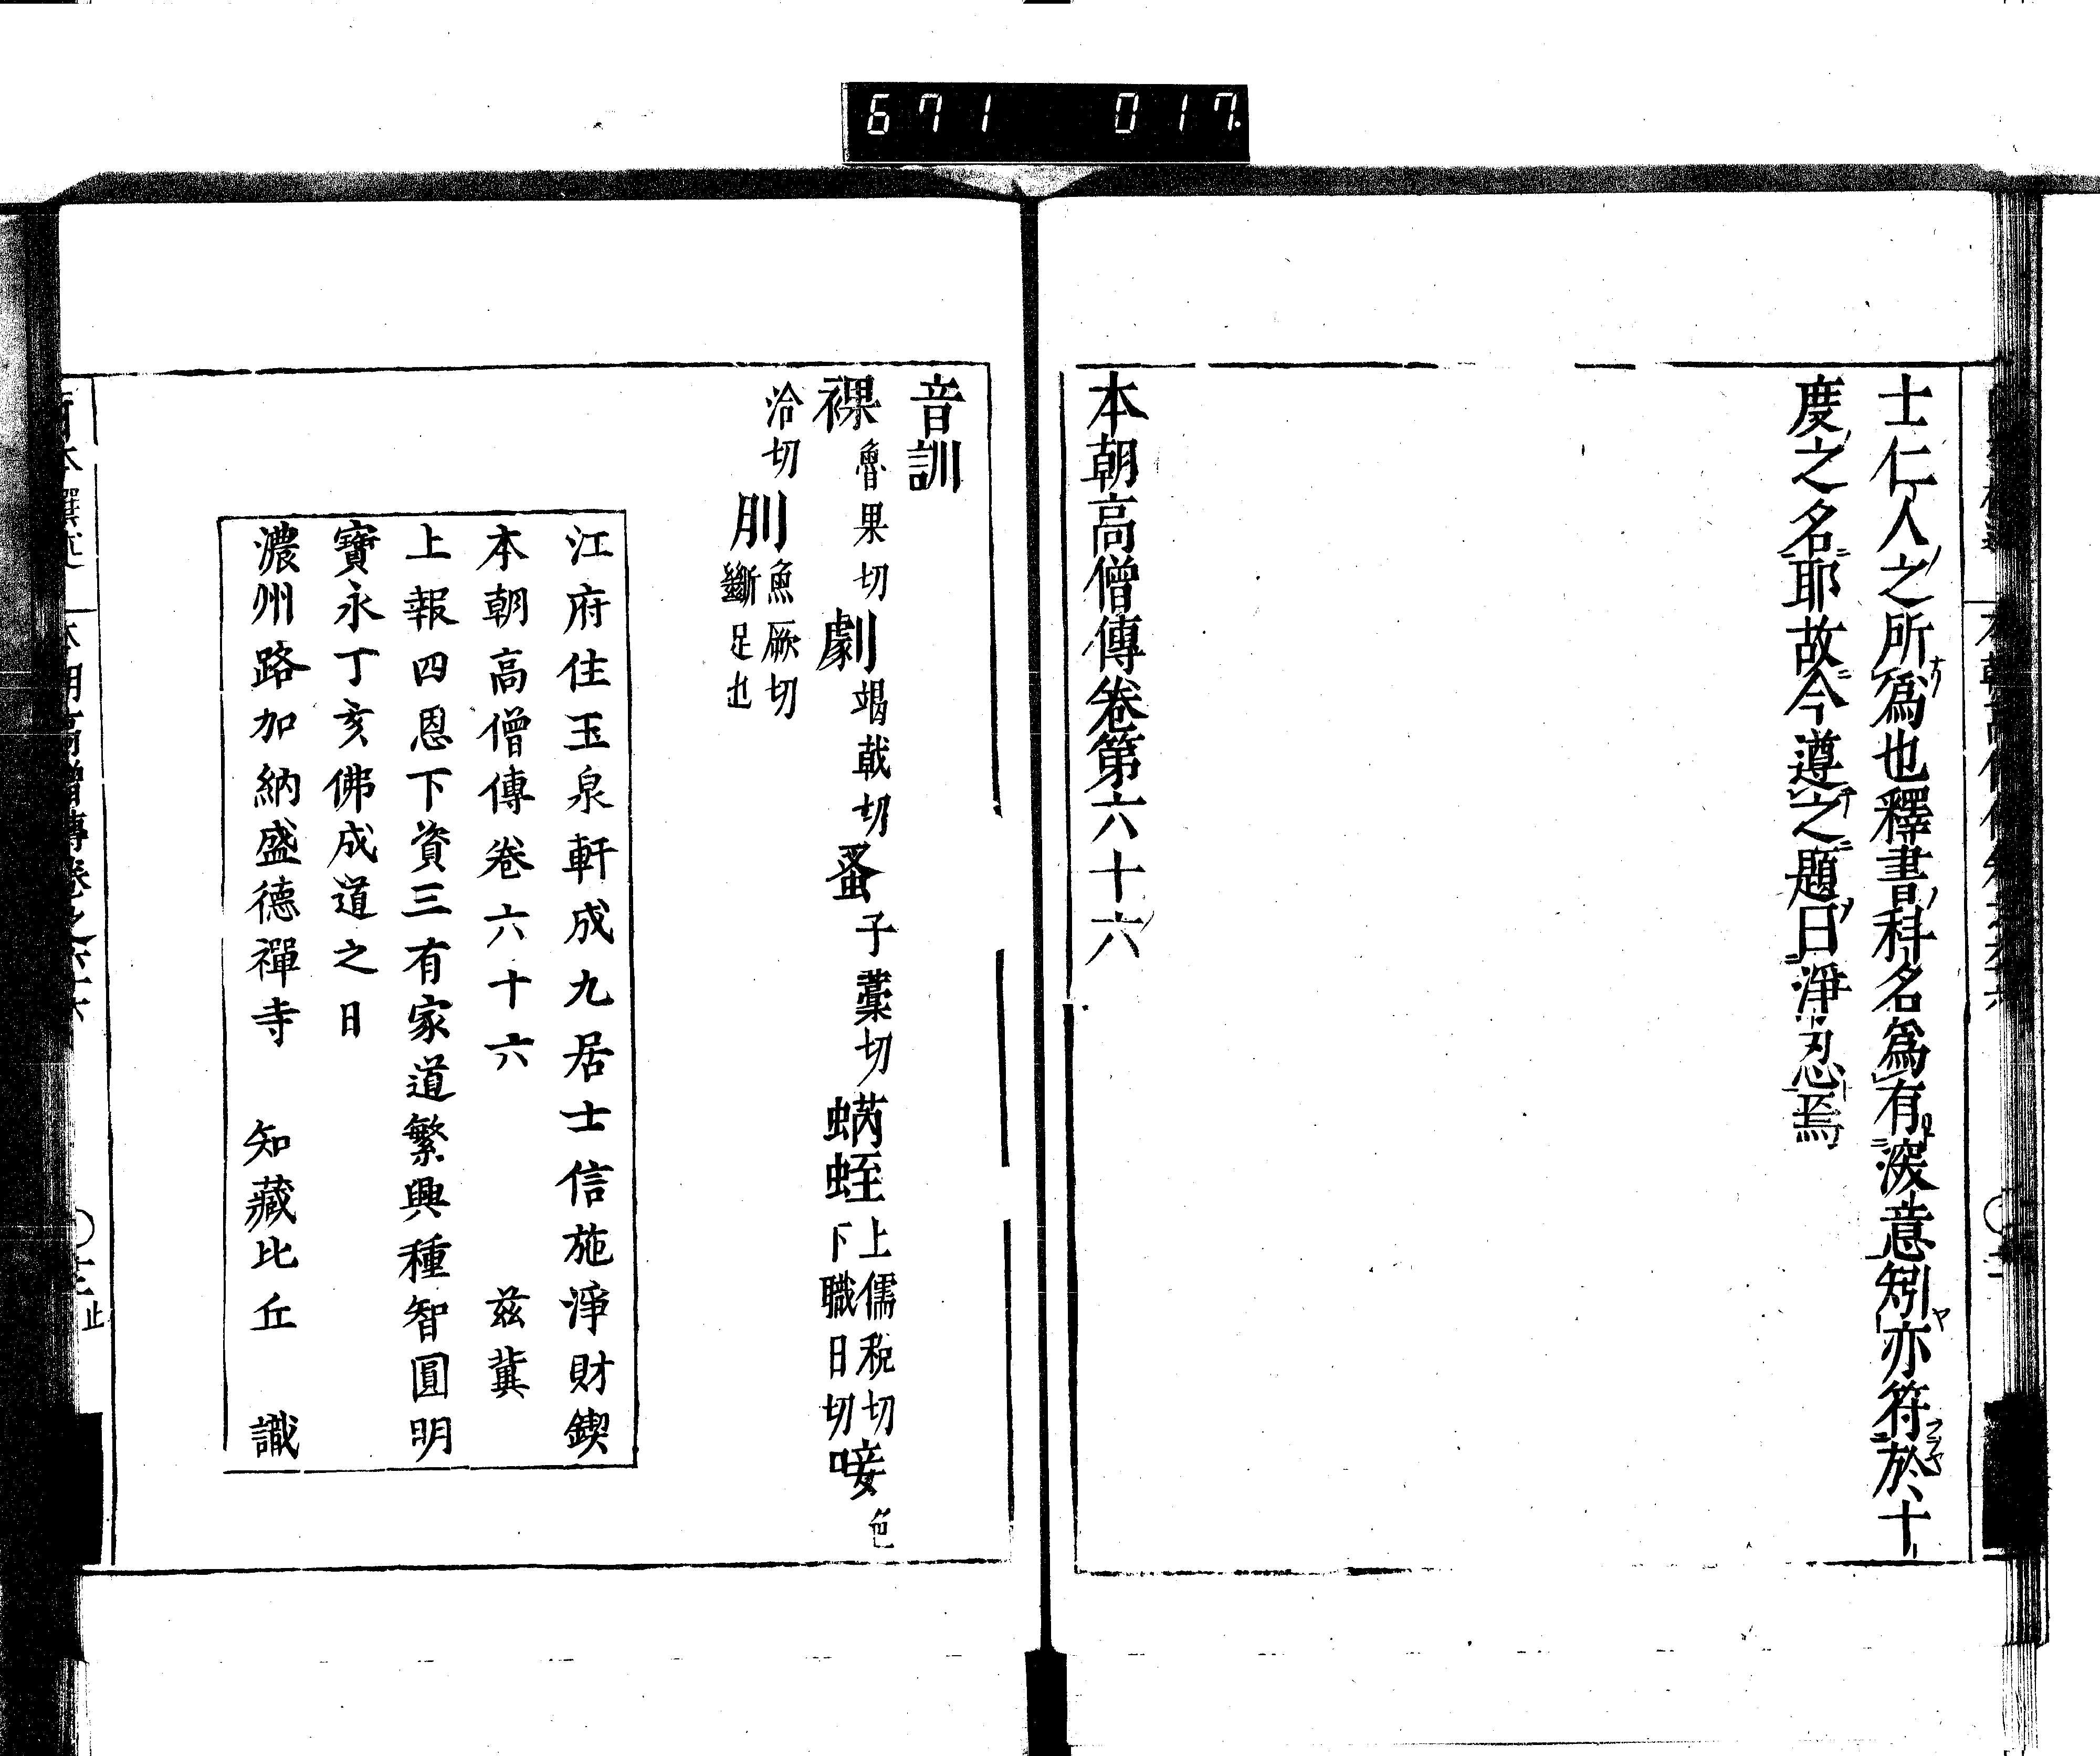 671 017
士仁人之所爲也釋書科名爲有深意矧亦符於十
度之名耶故今遵之題曰淨忍焉
本朝高僧傳卷第六十六
音訓
裸 魯果切 劇 竭戟切 蚤 子藁切 蜹蛭 上儒稅切 下職日切 唼 色
洽切 刖 魚厥切 斷足也
江府住玉泉軒成九居士信施淨財鍥
本朝高僧傳卷六十六 茲冀
上報四恩下資三有家道繁興種智圓明
寶永丁亥佛成道之日
濃州路加納盛德禪寺 知藏比丘 識
本朝高僧傳卷之六十六